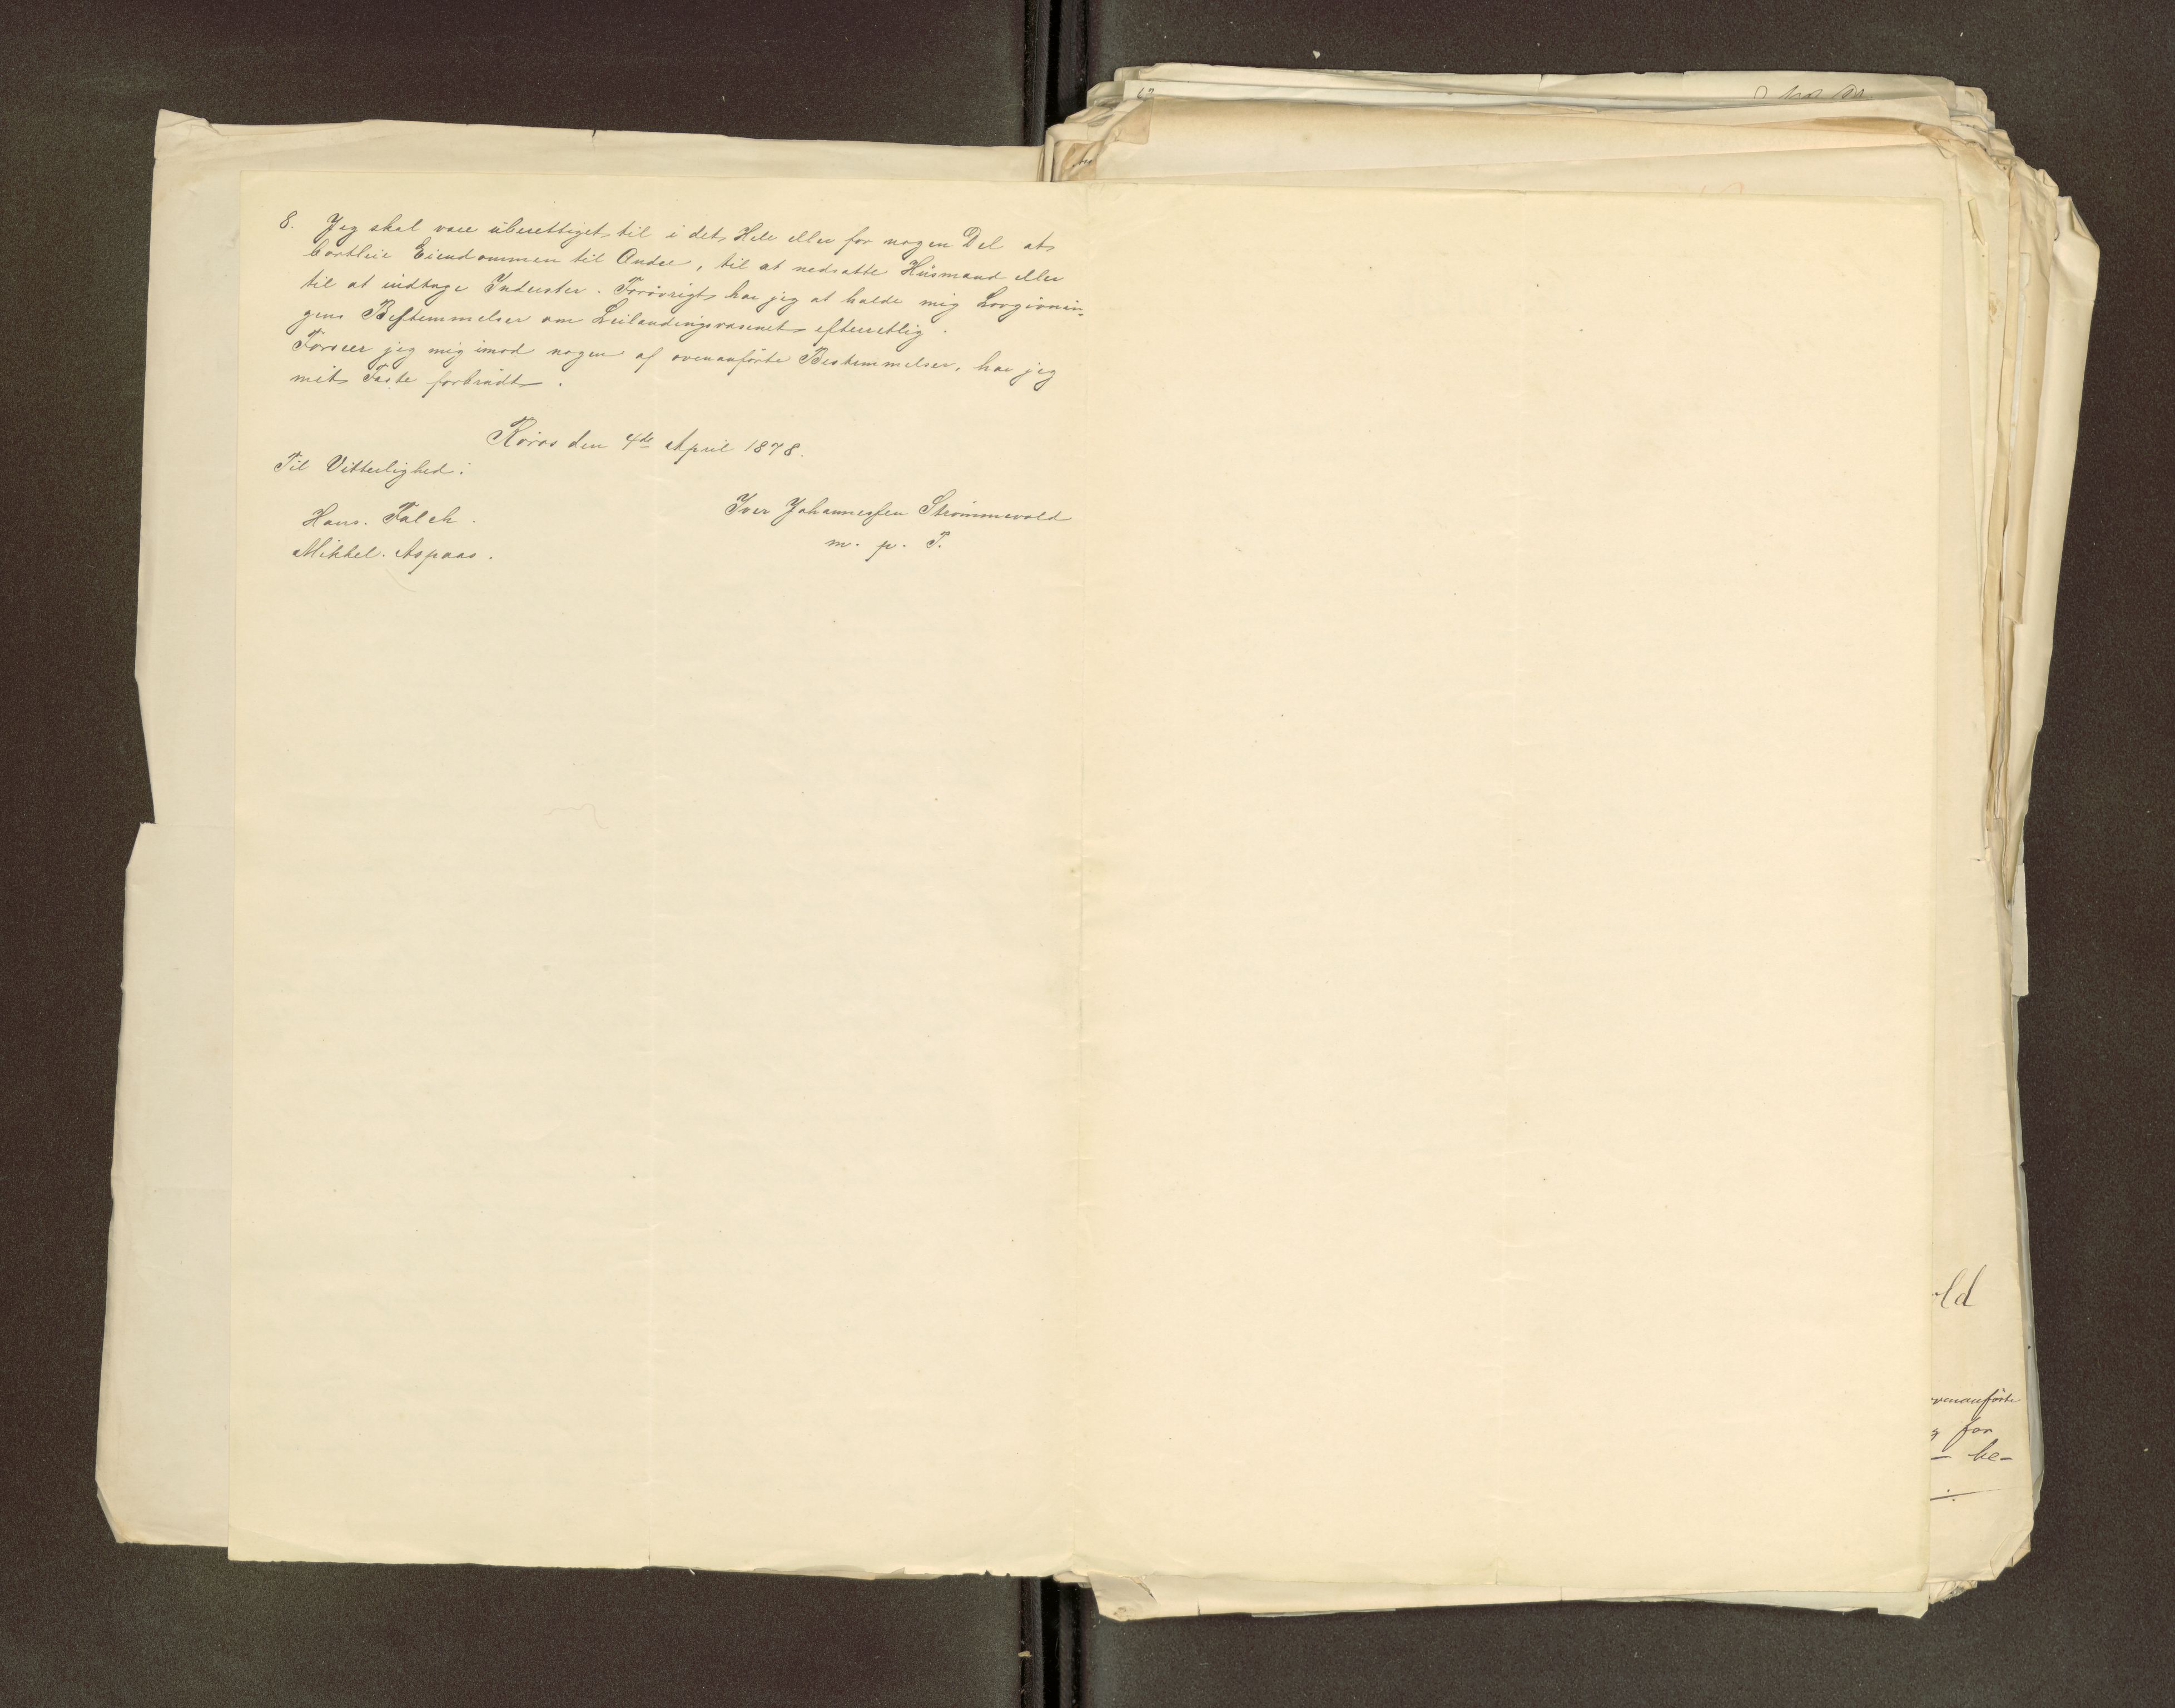 8. Jeg skal være uberettiget til i det Hele eller for nogen Del at
bortleie Eiendommen til Andre, til at nedsætte Husmænd eller
til at indtage Inderster. Forøvrigt har jeg at holde mig Lovgivnin-
gens Bestemmelser om Leilændingsvæsenet efterrettelig.
Forseer jeg mig imod nogen af ovenanførte Bestemmelser, har jeg
mit Fæste forbrudt.
Røros den 4de April 1878.
Til Vitterlighed:
Hans. Falch.
Mikkel. Aspaas.
Iver Johannessen Strømmevold
m. p. P.
old
ovenanførte
for
be-